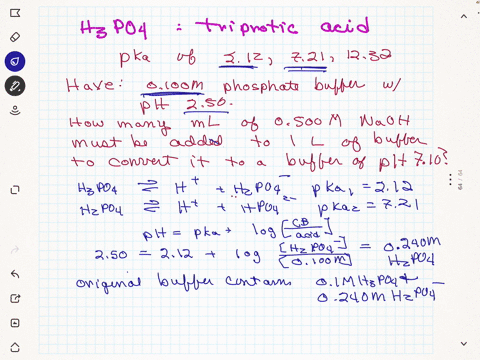 H₃PO₄ = triprotic acid
pka of 2.12, 7.21, 12.32
Have: 0.100M phosphate buffer w/
pH 2.50.
How many mL of 0.500 M NaOH
must be added to 1 L of buffer
to convert it to a buffer of pH 7.10?
H₃PO₄ ⇌ H⁺ + H₂PO₄⁻ pka₁ = 2.12
H₂PO₄ ⇌ H⁺ + HPO₄²⁻ pka₂ = 7.21
pH = pka + log [CB]/[acid]
2.50 = 2.12 + log [H₂PO₄⁻]/[0.100M] = 0.240M H₂PO₄
original buffer contains 0.1M H₃PO₄ +
0.240M H₂PO₄⁻